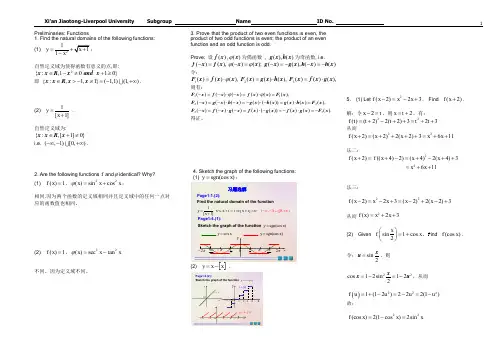 Xi'an Jiaotong-Liverpool University Subgroup Name ID No.
1
Preliminaries: Functions
1. Find the natural domains of the following functions:
(1) y = 1/(1-x²) + √(x+1).
自然定义域为使得函数有意义的点,即:
{x: x∈R, 1-x²≠0 and x+1≥0}
即 {x: x∈R, x>-1, x≠1} = (-1,1)⋃(1,+∞).
(2) y = 1/[x+1].
自然定义域为:
{x: x∈R, [x+1]≠0}
i.e. (-∞,-1)⋃[0,+∞).
2. Are the following functions f and φ identical? Why?
(1) f(x)=1, φ(x)=sin²x+cos²x;
相同,因为两个函数的定义域相同并且定义域中的任何一点对
应的函数值也相同.
(2) f(x)=1, φ(x)=sec²x-tan²x
不同。因为定义域不同。
3. Prove that the product of two even functions is even; the
product of two odd functions is even; the product of an even
function and an odd function is odd.
Prove: 设 f(x),φ(x) 为偶函数 , g(x),h(x) 为奇函数, i.e.
f(-x)=f(x), φ(-x)=φ(x); g(-x)=-g(x),h(-x)=-h(x)
令:
F₁(x)=f(x)·φ(x), F₂(x)=g(x)·h(x), F₃(x)=f(x)·g(x),
则有:
F₁(-x)=f(-x)·φ(-x)=f(x)·φ(x)=F₁(x),
F₂(-x)=g(-x)·h(-x)=-g(x)·(-h(x))=g(x)·h(x)=F₂(x),
F₃(-x)=f(-x)·g(-x)=f(x)·(-g(x))=-f(x)·g(x)=-F₃(x).
得证。
4. Sketch the graph of the following functions:
(1) y=sgn(cos x);
习题选解
Page1-1.(2):
Find the natural domain of the function
Page1-4.(1):
Sketch the graph of the function y=sgn(cos x)
y=cos x y=sgn(cos x)
(2) y=x-[x].
Sketch the graph of the function
5. (1) Let f(x-2)=x²-2x+3. Find f(x+2).
解: 令x-2=t, 则x=t+2, 有:
f(t)=(t+2)²-2(t+2)+3=t²+2t+3
从而
f(x+2)=(x+2)²+2(x+2)+3=x²+6x+11
法二:
f(x+2)=f((x+4)-2)=(x+4)²-2(x+4)+3
=x²+6x+11
法三:
f(x-2)=x²-2x+3=(x-2)²+2(x-2)+3
从而 f(x)=x²+2x+3
(2) Given f(sin x/2)=1+cos x, find f(cos x).
令: u=sin x/2, 则
cos x=1-2sin² x/2=1-2u², 从而
f(u)=1+(1-2u²)=2-2u²=2(1-u²)
故:
f(cos x)=2(1-cos²x)=2sin²x